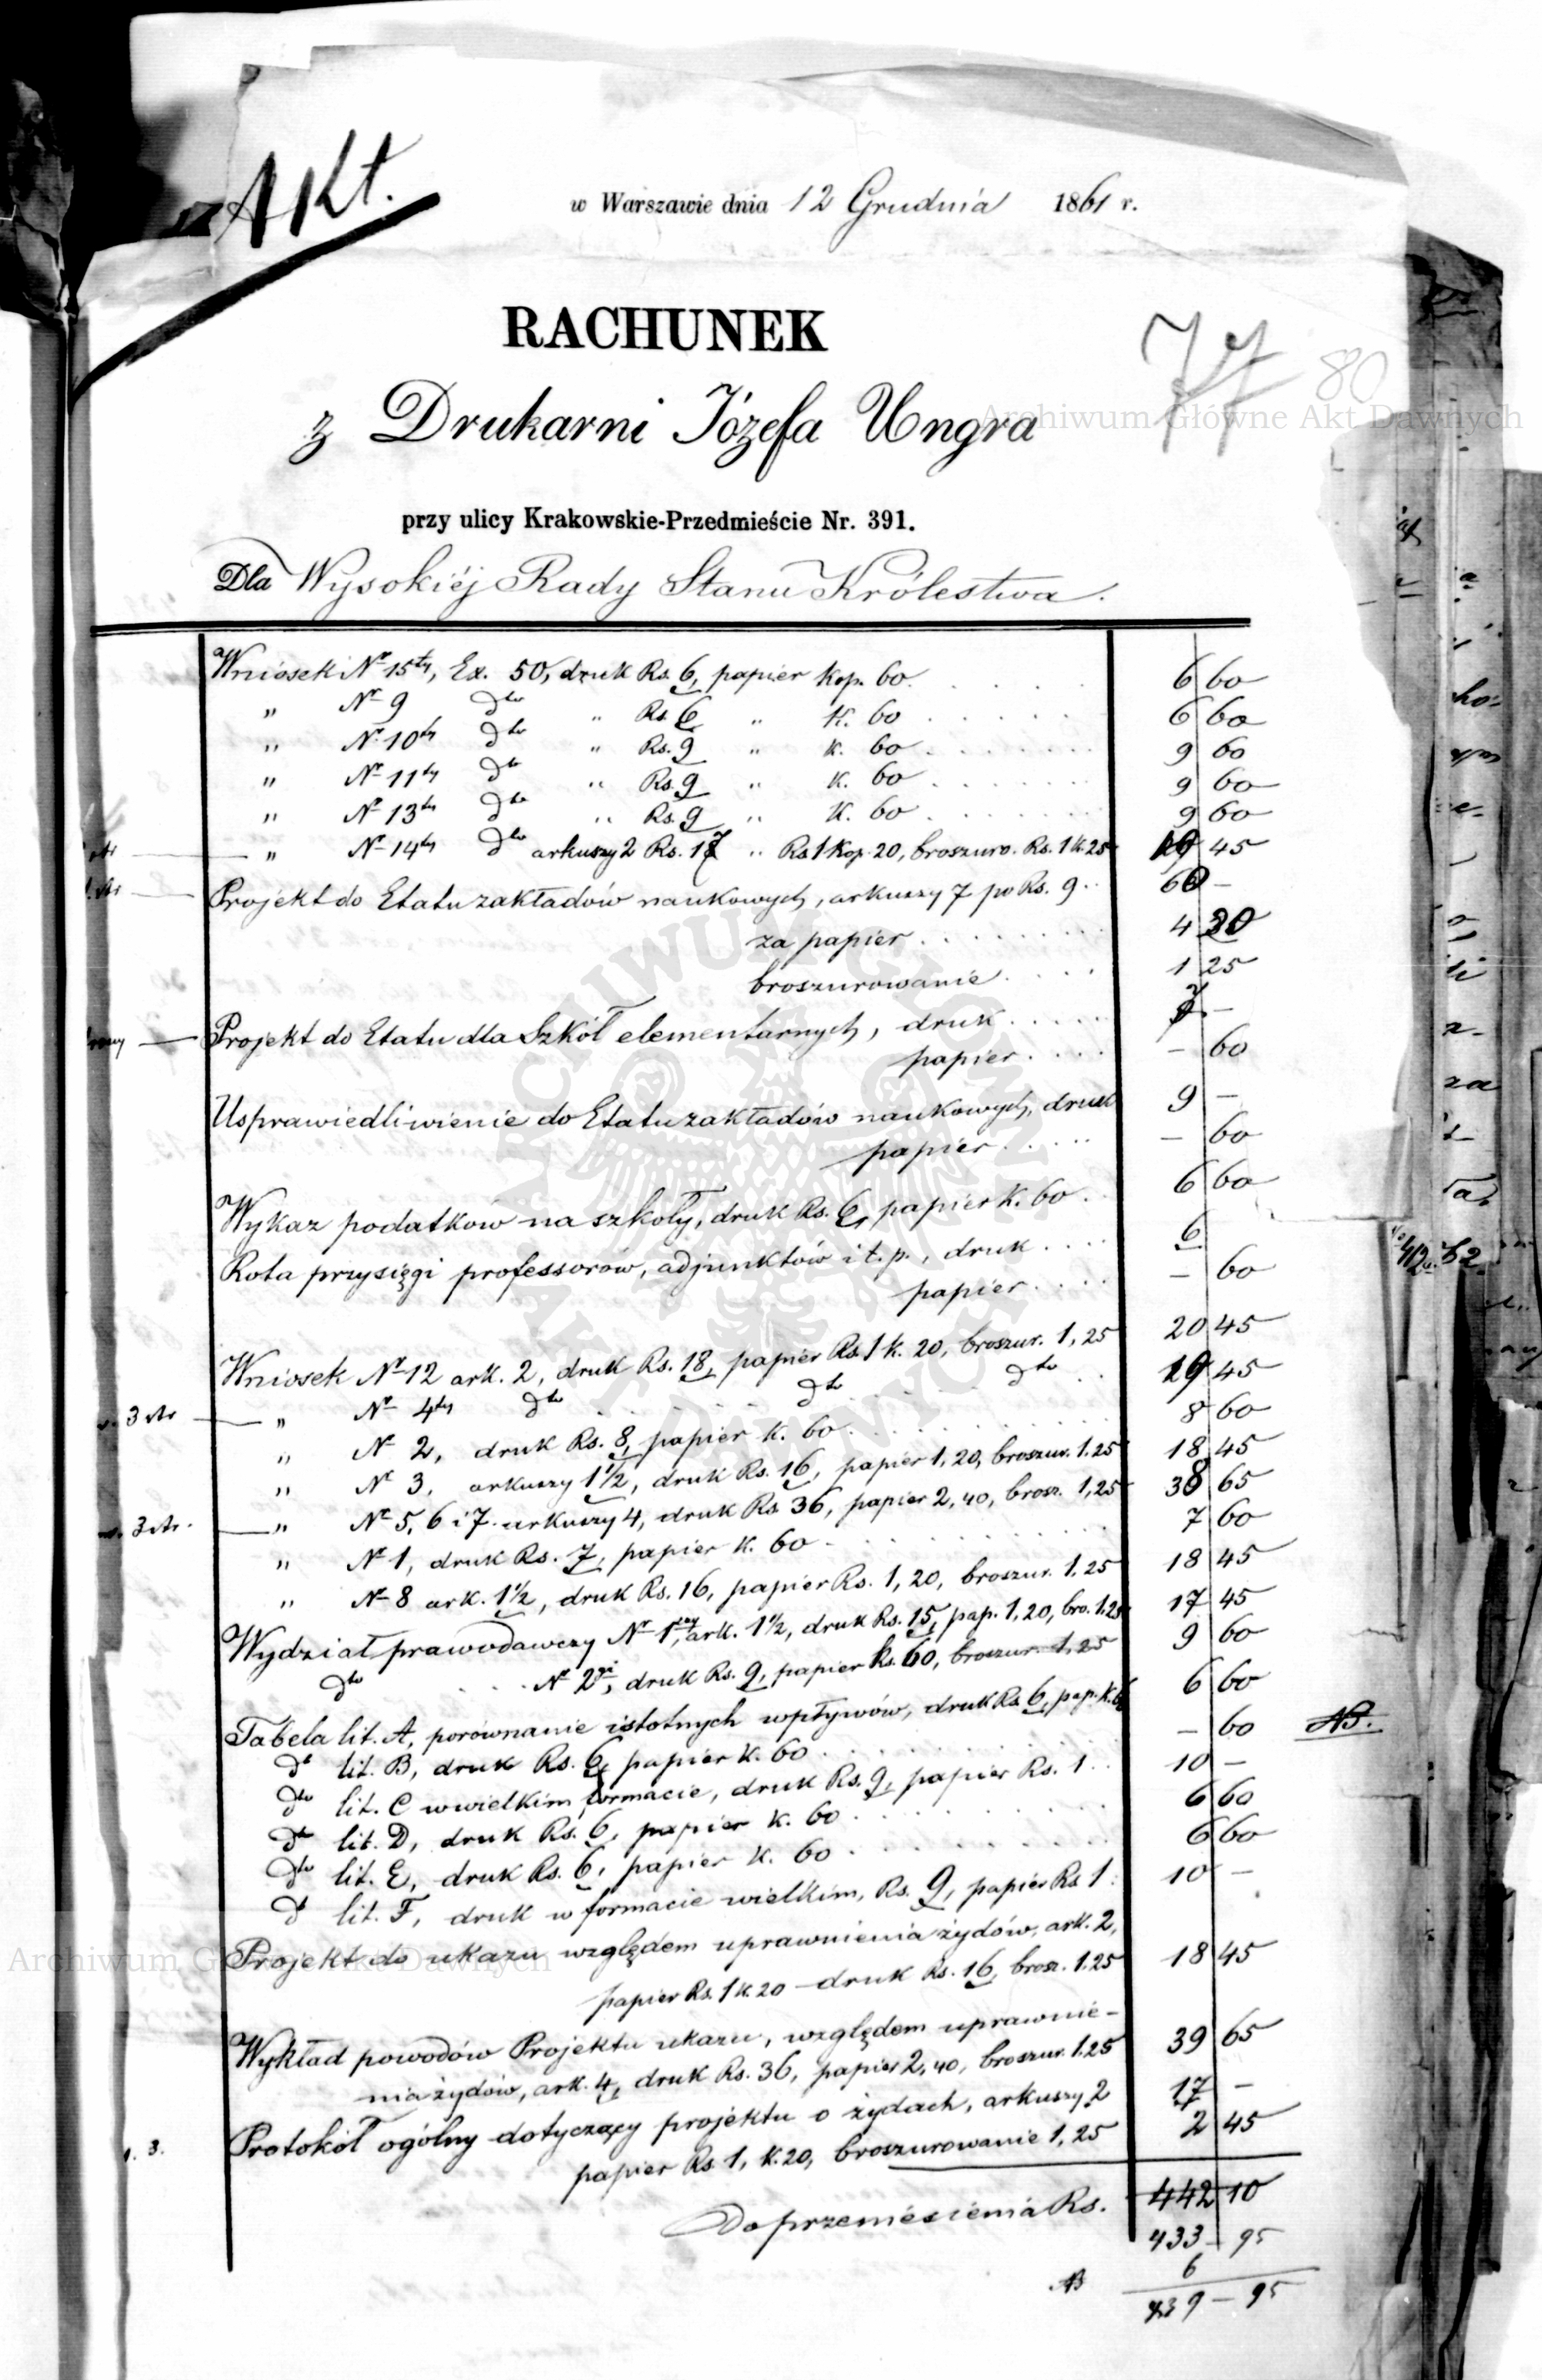 Akt.
w Warszawie dnia 12 Grudnia 1861 r.
RACHUNEK
77 80
z Drukarni Józefa Ungra
Archiwum Główne Akt Dawnych
przy ulicy Krakowskie-Przedmieście Nr. 391.
Dla Wysokiéj Rady Stanu Królestwa.
Wniosek Nr 15ty, Ex. 50, druk Rs. 6, papier kop. 60. 6 60
" Nr 9 dto " Rs. 6 " K. 60 6 60
" Nr 10ty dto " Rs. 9 " K. 60 9 60
" Nr 11ty dto " Rs. 9 " K. 60 9 60
" Nr 13ty dto " Rs. 9 " K. 60 9 60
" Nr 14ty dto arkuszy 2 Rs. 17 " Rs 1 Kop. 20, broszuro. Rs. 1 K. 25 19 45
Projekt do Etatu zakładów naukowych, arkuszy 7 po Rs. 9 60 –
za papier 4 20
broszurowanie 1 25
Projekt do Etatu dla Szkół elementarnych, druk 7 –
papier – 60
Usprawiedliwienie do Etatu zakładów naukowych, druk 9 –
papier – 60
Wykaz podatków na szkoły, druk Rs. 6, papier K. 60 6 60
Rota przysięgi professorów, adjunktów i t. p., druk 6
papier – 60
Wniosek Nr 12 ark. 2, druk Rs. 18, papier Rs. 1 k. 20, broszur. 1,25 20 45
" Nr 4ty dto dto dto 19 45
" Nr 2, druk Rs. 8, papier K. 60 8 60
" Nr 3, arkuszy 1 1/2, druk Rs. 16, papier 1,20, broszur. 1.25 18 45
" Nr 5, 6 i 7 arkuszy 4, druk Rs. 36, papier 2,40, brosz. 1,25 38 65
" Nr 1, druk Rs. 7, papier K. 60 7 60
" Nr 8 ark. 1 1/2, druk Rs. 16, papier Rs. 1,20, broszur. 1.25 18 45
Wydział prawodawczy Nr 1szy, ark. 1 1/2, druk Rs. 15, pap. 1,20, bro. 1.25 17 45
dto Nr 2gi, druk Rs. 9, papier ks. 60, broszur. 1,25 9 60
Tabela lit. A, porównanie istotnych wpływów, druk Rs. 6, pap. K. 60 6 60
dto lit. B, druk Rs. 6, papier K. 60 – 60 NB.
dto lit. C w wielkim formacie, druk Rs. 9, papier Rs. 1 10 –
dto lit. D, druk Rs. 6, papier K. 60 6 60
dto lit. E, druk Rs. 6, papier K. 60 6 60
dto lit. F, druk w formacie wielkim, Rs. 9, papier Rs 1 10 –
Projekt do ukazu względem uprawnienia żydów, ark. 2,
papier Rs. 1 K. 20 – druk Rs. 16, brosz. 1.25 18 45
Wykład powodów Projektu ukazu, względem uprawnie-
nia żydów, ark. 4, druk Rs. 36, papier 2,40, broszur. 1.25 39 65
Protokół ogólny dotyczący projektu o żydach, arkuszy 2 17 –
papier Rs 1, K. 20, broszurowanie 1,25 2 45
Do przeniesienia Rs. 442 10
433 – 95
NB 6
439 – 95
Archiwum Główne Akt Dawnych